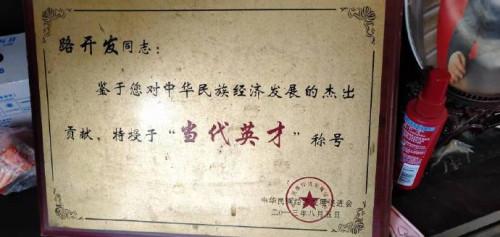 路开发同志：
鉴于您对中华民族经济发展的杰出
贡献，特授于“当代英才”称号
中华民族经济发展促进会
二〇一三年八月五日